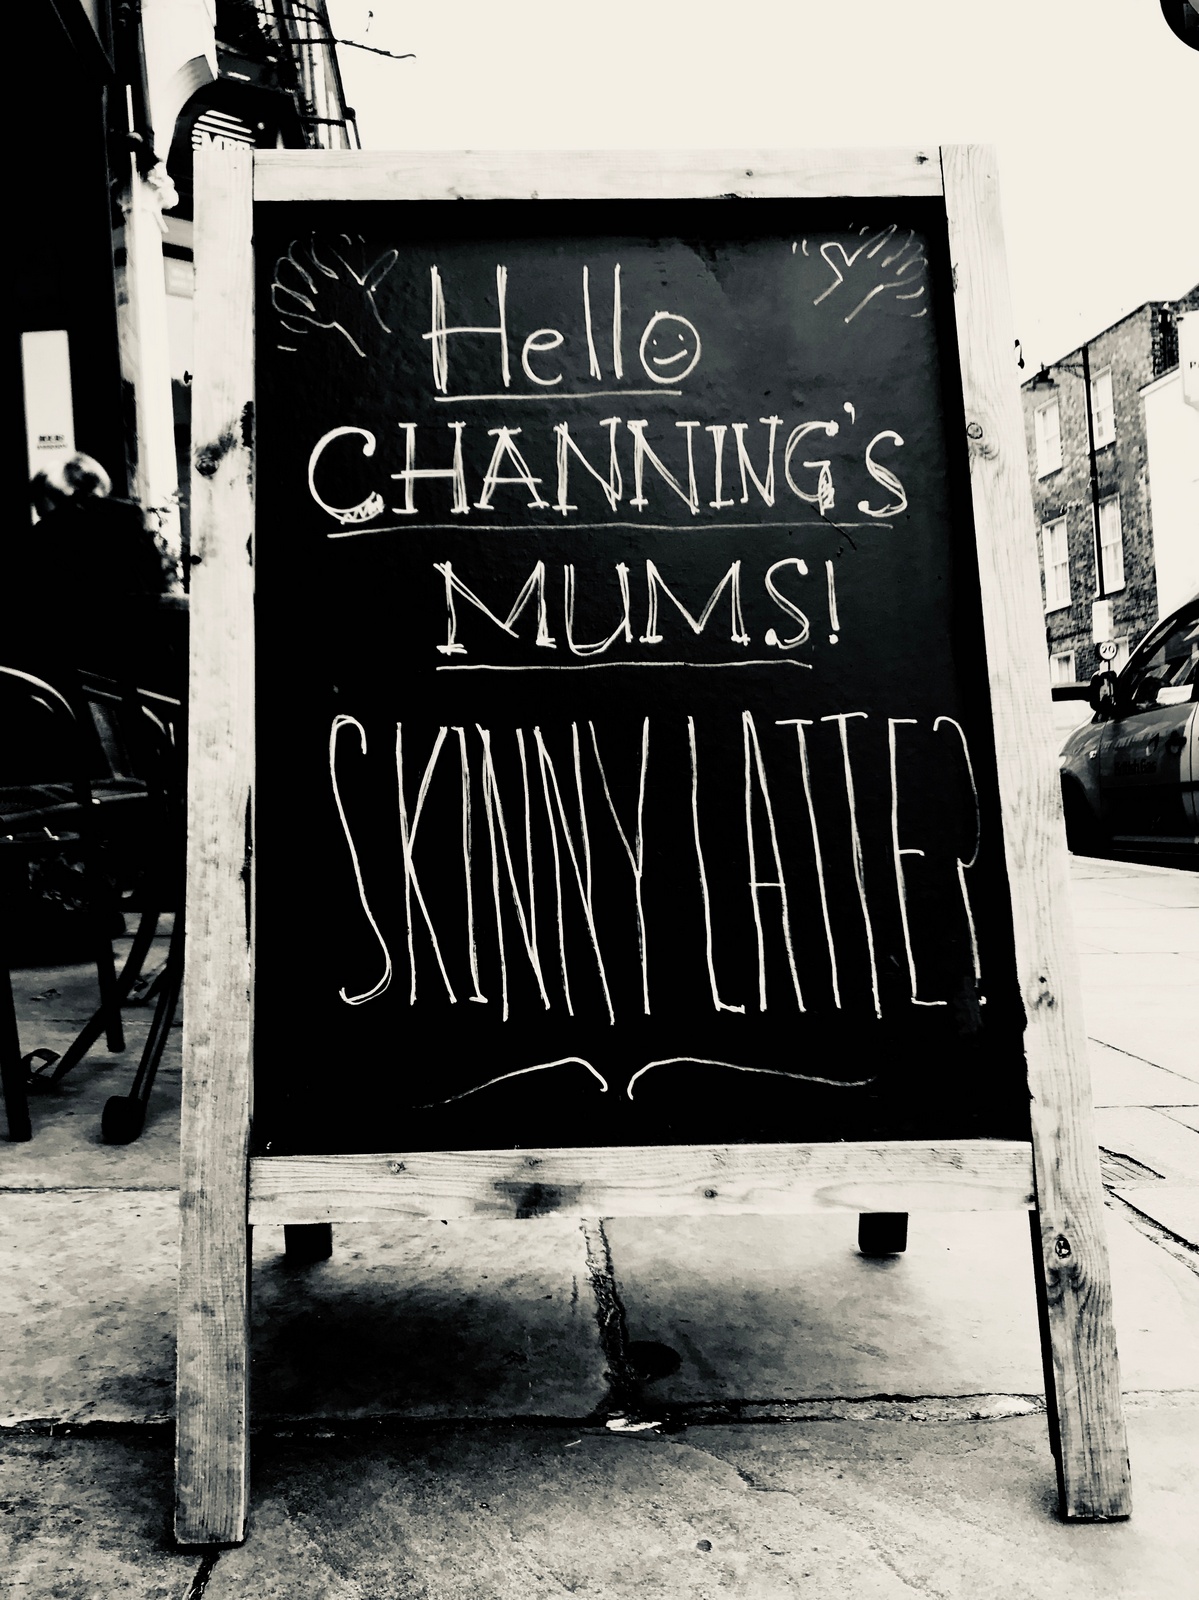 Hello
CHANNING'S
MUMS!
SKINNY LATTE?
20